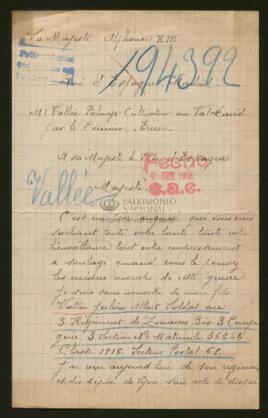 Sa Majesté Alphonse XIII
194392
Roi d'Espagne Madrid
Mr Vallée Palmyr Cultivateur au Val David
par le Cormier Eure
A sa Majesté le Roi d'Espagne
Fecha
9 SET. 1918
Majesté
Vallée
PATRIMONIO
NACIONAL
C'est que vous viens
sachant toute votre bonté toute votre
bienveillance tout votre empressement
a soulager quand vous le pouvez
les misères morales de cette guerre
Je suis sans nouvelle de mon fils
Vallée Julien Albert Soldat au
3 Régiment de Zouaves Bis 3 Compa
gnie 3 Section No Matricule
Classe 1918. Secteur Postal 68.
j'ai reçu aujourd'hui de son régiment
et du dépôt de Lyon son acte de dispari